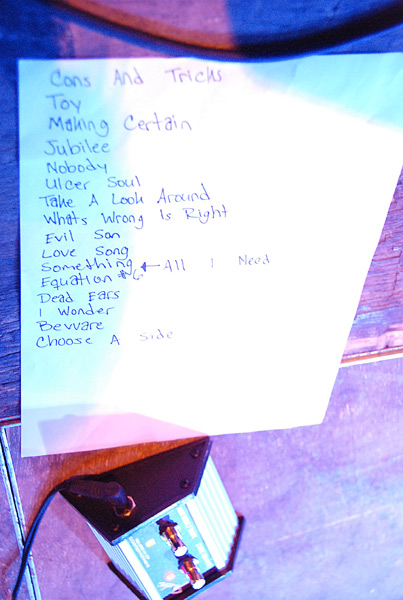 Cons And Tricks
Toy
Making Certain
Jubilee
Nobody
Ulcer Soul
Take A Look Around
Whats Wrong Is Right
Evil Son
Love Song
Something ← All I Need
Equation #6
Dead Ears
I Wonder
Bevvare
Choose A Side